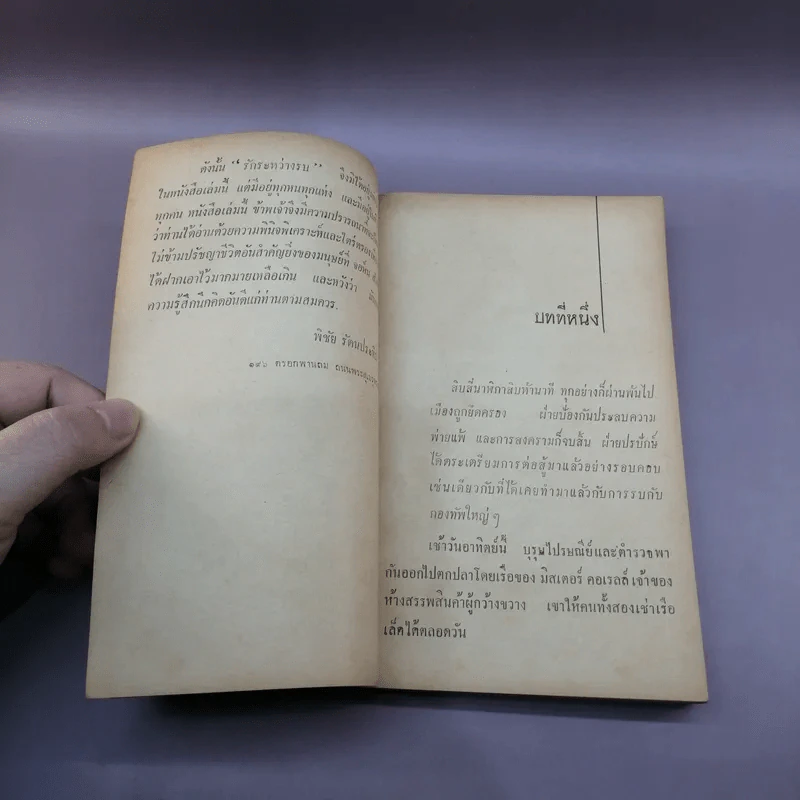 ดังนั้น "รักระหว่างรบ" จึงมิได้อยู่
ในหนังสือเล่มนี้ แต่มีอยู่ทุกหนทุกแห่ง และมีอยู่ใน
ทุกคน หนังสือเล่มนี้ ข้าพเจ้าจึงมีความปรารถนา
ว่าท่านได้อ่านด้วยความพินิจพิเคราะห์และไตร่ตรอง
ไม่ข้ามปรัชญาชีวิตอันสำคัญยิ่งของมนุษย์ที่ จอห์น
ได้ฝากเอาไว้มากมายเหลือเกิน และหวังว่า
ความรู้สึกนึกคิดอันดีแก่ท่านตามสมควร.
พิชัย รัตนประทีป
๑๙๖ ตรอกพานถม ถนนพระสุเมรุ
บทที่หนึ่ง
สิบสี่นาฬิกาสิบห้านาที ทุกอย่างก็ผ่านพ้นไป
เมืองถูกยึดครอง ฝ่ายป้องกันประสบความ
พ่ายแพ้ และการสงครามก็จบสิ้น ฝ่ายปรปักษ์
ได้ตระเตรียมการต่อสู้มาแล้วอย่างรอบคอบ
เช่นเดียวกับที่ได้เคยทำมาแล้วกับการรบกับ
กองทัพใหญ่ ๆ
เช้าวันอาทิตย์นี้ บุรุษไปรษณีย์และตำรวจพา
กันออกไปตกปลาโดยเรือของ มิสเตอร์ คอเรลล์ เจ้าของ
ห้างสรรพสินค้าผู้กว้างขวาง เขาให้คนทั้งสองเช่าเรือ
เล็กได้ตลอดวัน